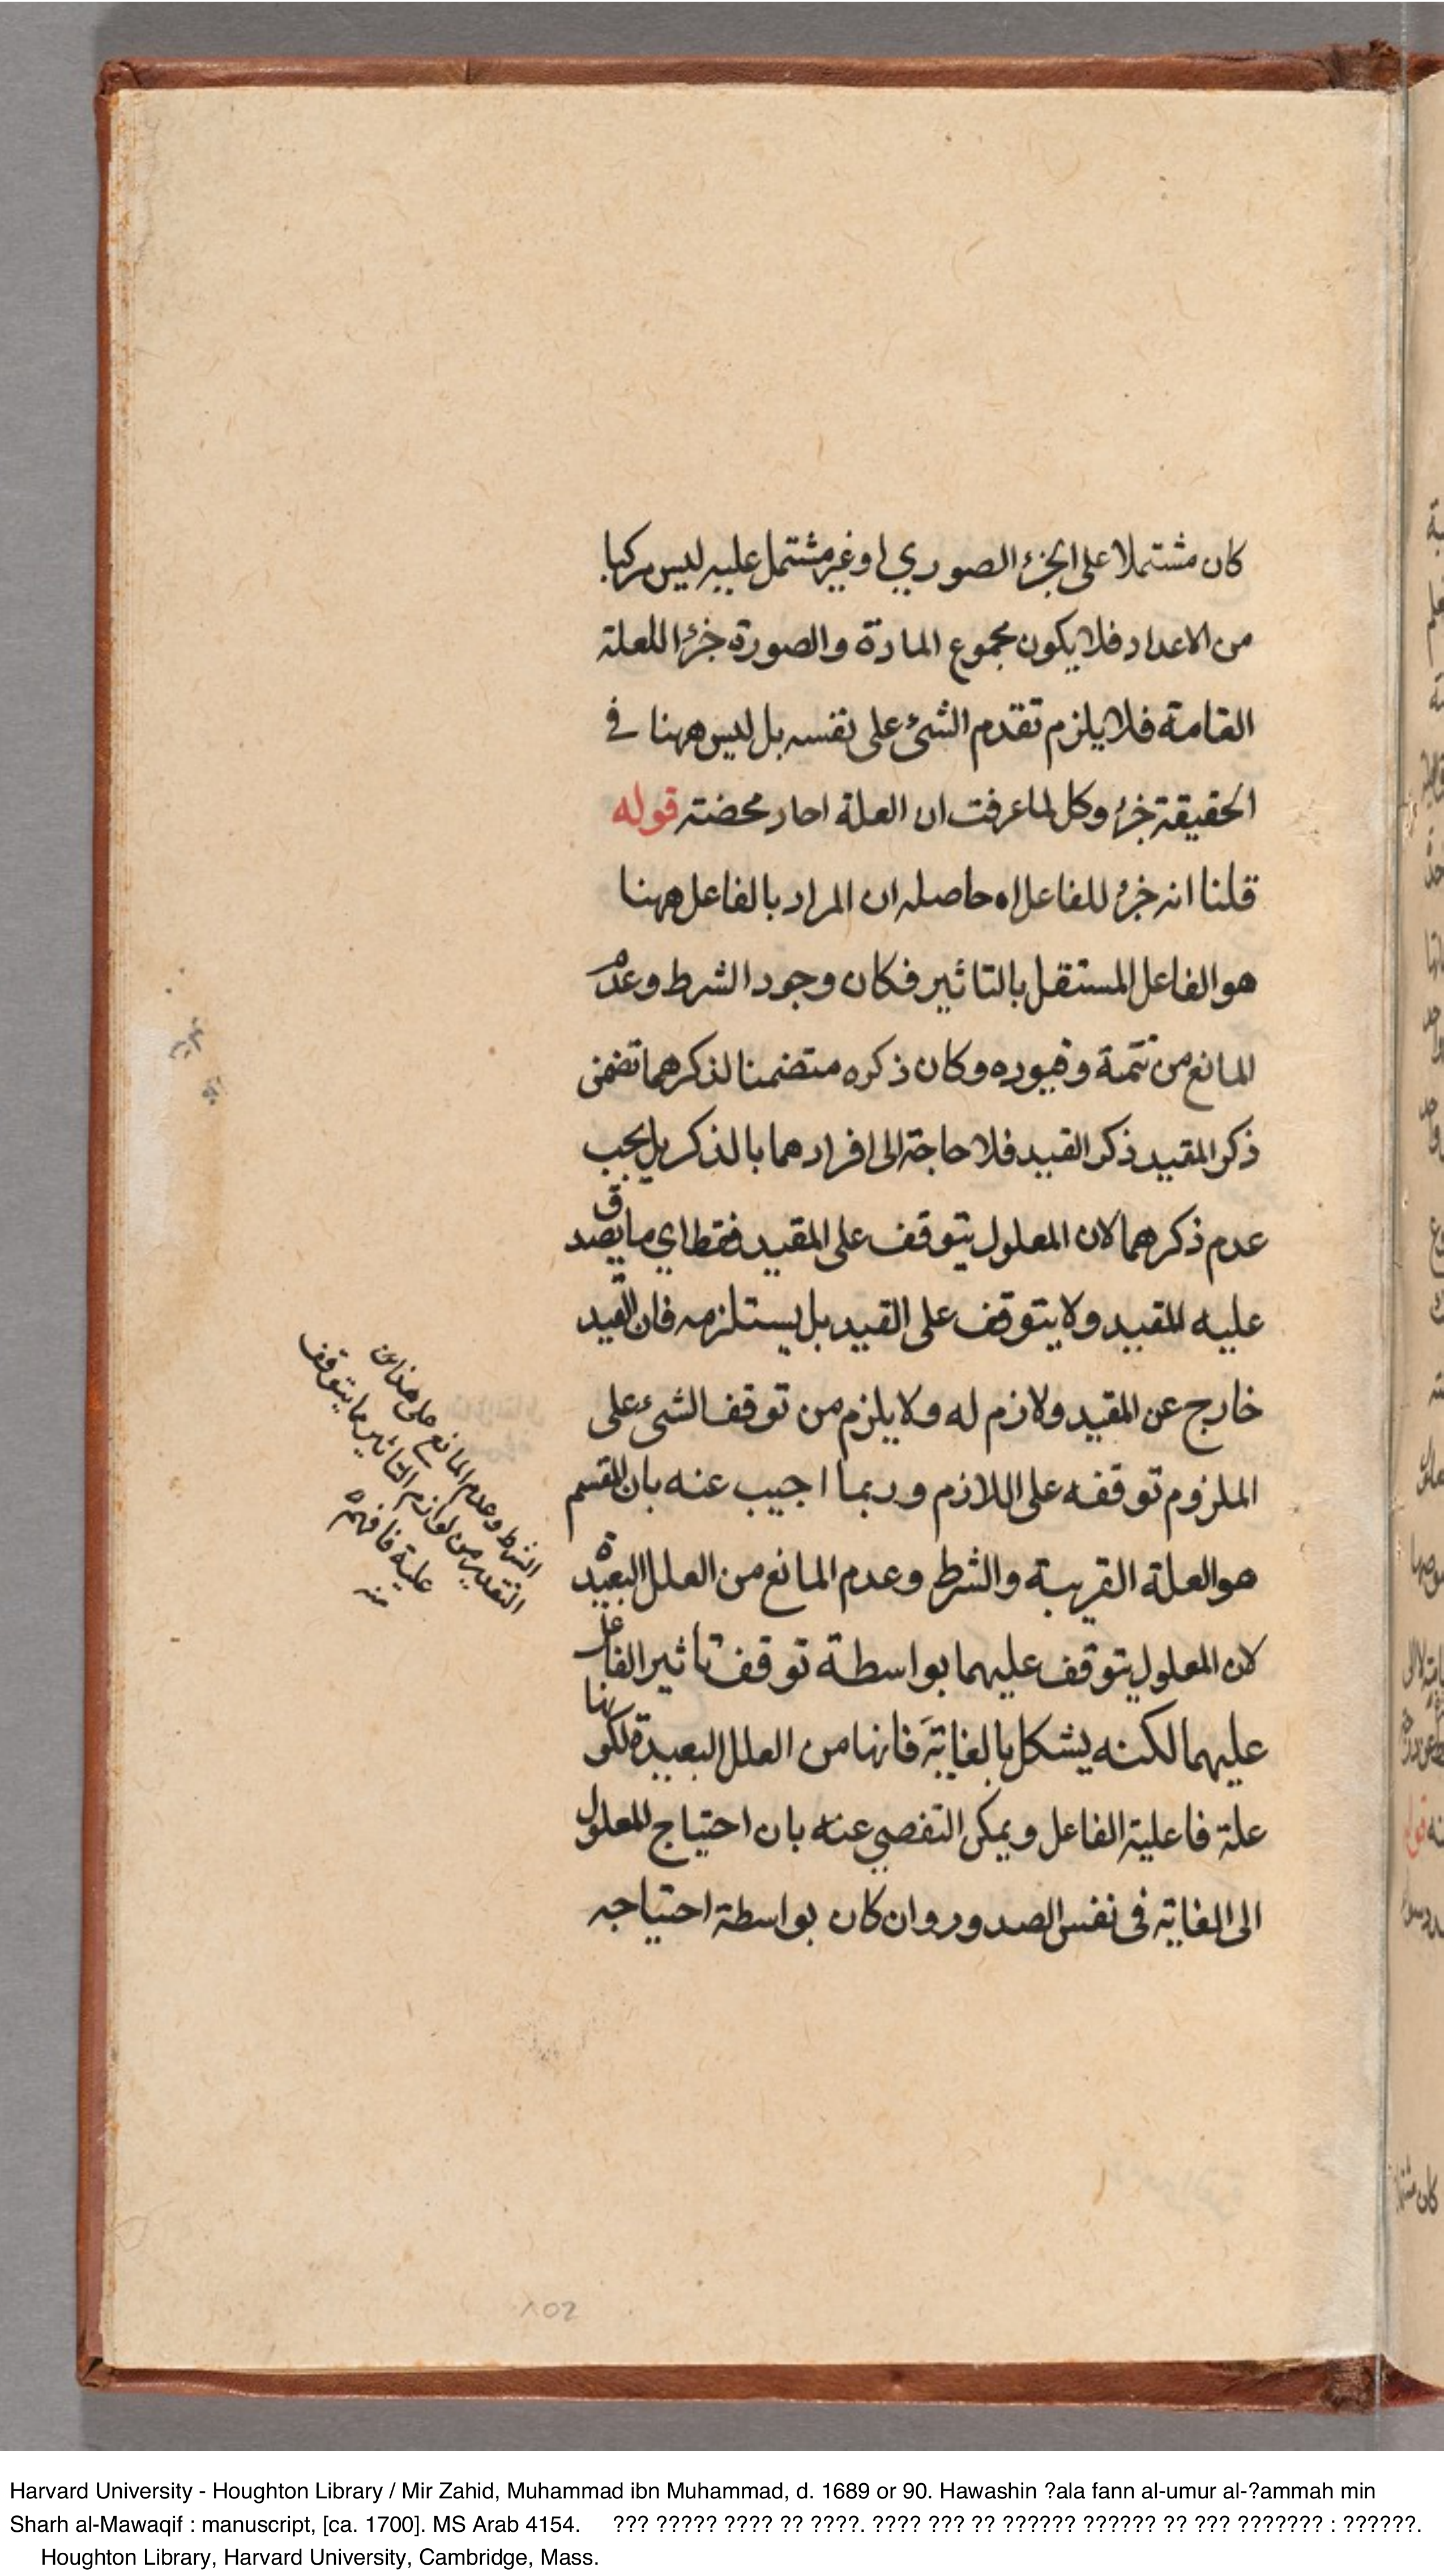 كان مشتملا على الجزء الصوري او غير مشتمل عليه ليس مركبا
من الاعداد فلا يكون مجموع المادة والصورة جزءا للعلة
التامة فلا يلزم تقدم الشئ على نفسه بل ليس ههنا في
الحقيقة جزء وكل لما عرفت ان العلة احاد محضته قوله
قلنا انه جزء للفاعل اه حاصله ان المراد بالفاعل ههنا
هو الفاعل المستقل بالتاثير فكان وجود الشرط وعدم
المانع من تتمة وقيوده وكان ذكره متضمنا لذكرهما تضمن
ذكر المقيد ذكر القيد فلا حاجة الى افرادهما بالذكر بل يجب
عدم ذكرهما لان المعلول يتوقف على المقيد فقط اي ما يصدق
عليه المقيد ولا يتوقف على القيد بل يستلزمه فان القيد
خارج عن المقيد ولازم له ولا يلزم من توقف الشئ على
الملزوم توقفه على اللازم وربما اجيب عنه بان المقسم
هو العلة القريبة والشرط وعدم المانع من العلل البعيدة
لان المعلول يتوقف عليهما بواسطة توقف تاثير الفاعل
عليهما لكنه يشكل بالغاية فانها من العلل البعيدة لكونها
علة فاعلية الفاعل ويمكن التفصي عنه بان احتياج المعلول
الى الغاية في نفس الصدور وان كان بواسطة احتياجه
الشرط وعدم المانع على هذا
التقدير من لوازم التاثير مما يتوقف
عليه فافهم
منه
102
Harvard University - Houghton Library / Mir Zahid, Muhammad ibn Muhammad, d. 1689 or 90. Hawashin ?ala fann al-umur al-?ammah min
Sharh al-Mawaqif : manuscript, [ca. 1700]. MS Arab 4154. ??? ????? ???? ?? ????. ???? ??? ?? ?????? ?????? ?? ??? ??????? : ??????.
Houghton Library, Harvard University, Cambridge, Mass.